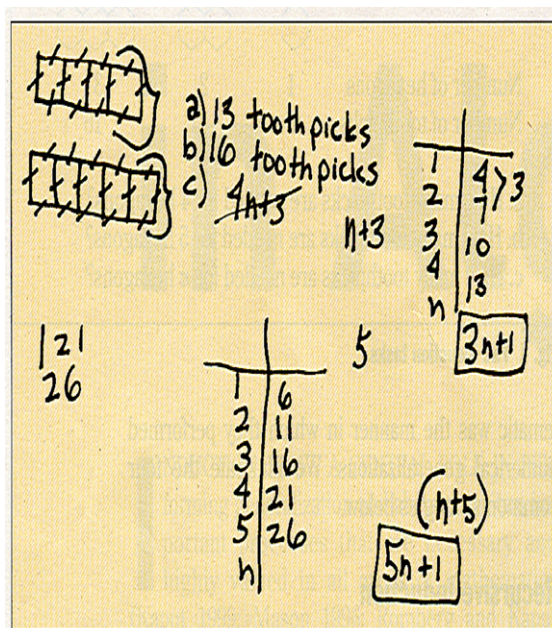 a) 13 toothpicks
b) 16 toothpicks
c) 4n+3
n+3
1 | 4
2 | 7 > 3
3 | 10
4 | 13
n | 3n+1
121
26
5
1 | 6
2 | 11
3 | 16
4 | 21
5 | 26
n
(n+5)
5n+1